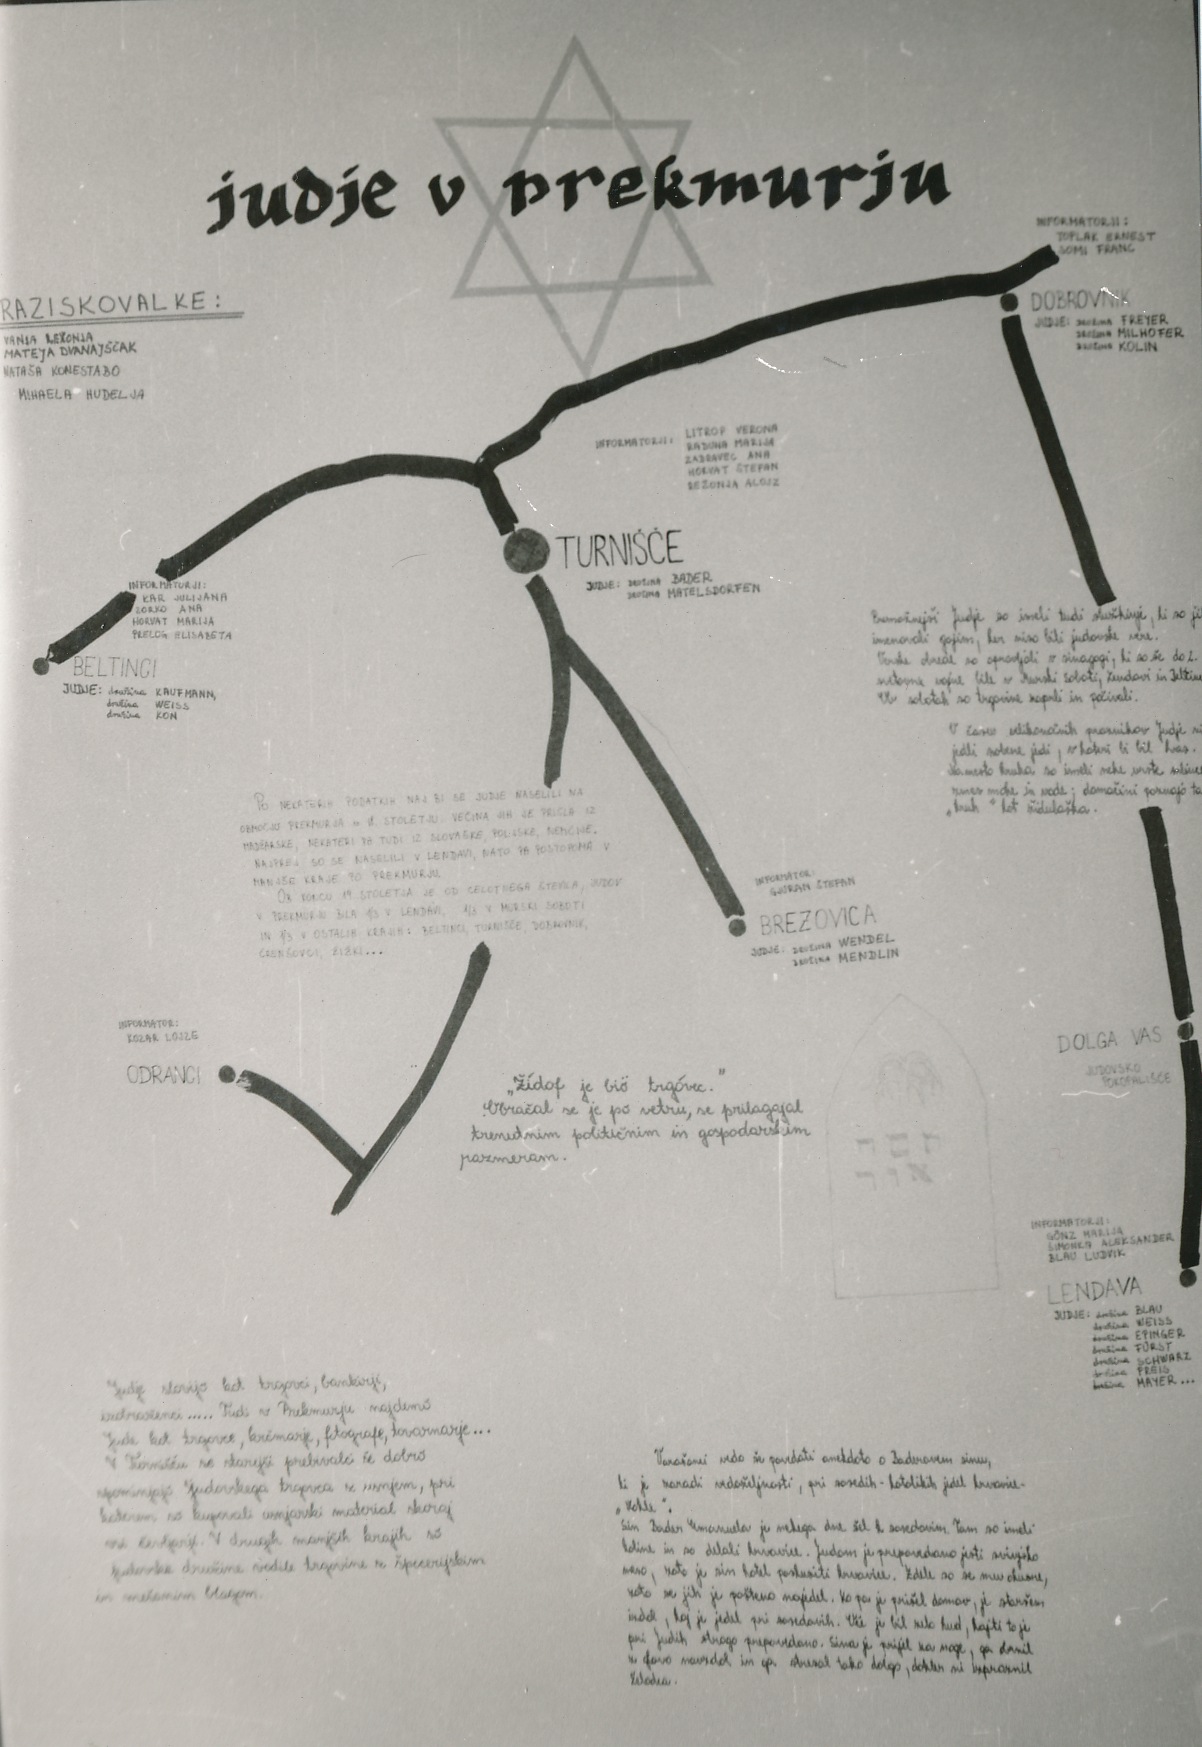 judje v prekmurju
RAZISKOVALKE:
VANJA REŽONJA
MATEJA DVANAJŠČAK
NATAŠA KONESTABO
MIHAELA HUDELJA
INFORMATORJI:
TOPLAK ERNEST
SOMI FRANC
DOBROVNIK
JUDJE: družina FREYER
družina MILHOFER
družina KOLIN
INFORMATORJI: LITROP VERONA
RADUHA MARIJA
ZADRAVEC ANA
HORVAT ŠTEFAN
REŽONJA ALOJZ
TURNIŠČE
JUDJE: družina BADER
družina MATELSDORFEN
INFORMATURJI:
KAR JULIJANA
ZORKO ANA
HORVAT MARIJA
PRELOG ELISABETA
BELTINCI
JUDJE: družina KAUFMANN,
družina WEISS
družina KON
Premožnejši Judje so imeli tudi služkinje, ki so jih
imenovali gojim, ker niso bili judovske vere.
Verske obrede so opravljali v sinagogi, ki so še do 2.
svetovne vojne bile v Murski Soboti, Lendavi in Beltinc
Ob sobotah so trgovine zaprli in počivali.
V času velikonočnih praznikov Judje ni
jedli nobene jedi, v kateri bi bil kvas.
Namesto kruha so imeli neke vrste
zmes moke in vode; domačini poznajo ta
„kruh" kot
PO NEKATERIH PODATKIH NAJ BI SE JUDJE NASELILI NA
OBMOČJU PREKMURJA V STOLETJU. VEČINA JIH JE PRIŠLA IZ
MADŽARSKE, NEKATERI PA TUDI IZ SLOVAŠKE, POLJSKE, NEMČIJE.
NAJPREJ SO SE NASELILI V LENDAVI, NATO PA POSTOPOMA V
MANJŠE KRAJE PO PREKMURJU.
OB KONCU 19. STOLETJA JE OD CELOTNEGA ŠTEVILA JUDOV
V PREKMURJU BILA 1/3 V LENDAVI, 1/3 V MURSKI SOBOTI
IN 1/3 V OSTALIH KRAJIH: BELTINCI, TURNIŠČE, DOBROVNIK,
ČRENŠOVCI, ŽIŽKI...
INFORMATOR:
GJURAN ŠTEFAN
BREZOVICA
JUDJE: družina WENDEL
družina MENDLIN
INFORMATOR:
KOZAR LOJZE
ODRANCI
DOLGA VAS
JUDOVSKO
POKOPALIŠČE
„Židof je biö trgóvec."
Obračal se je po vetru, se prilagajal
trenutnim političnim in gospodarskim
razmeram.
INFORMATORJI:
GÖNZ MARIJA
SIMONKA ALEKSANDER
BLAU LUDVIK
LENDAVA
JUDJE: družina BLAU
družina WEISS
družina EPINGER
družina FÜRST
družina SCHWARZ
družina PREIS
družina MAYER...
Judje slovijo kot trgovci, bankirji,
izobraženci..... Tudi v Prekmurju najdemo
Jude kot trgovce, krčmarje, fotografe, tovarnarje...
V Turnišču so starejši prebivalci še dobro
spominjajo judovskega trgovca z usnjem, pri
katerem so kupovali usnjarski material skoraj
vsi čevljarji. V drugih manjših krajih so
judovske družine vodile trgovine s špecerijskim
in mešanim blagom.
Varašanci vedo še povedati anekdoto o Baderovem sinu,
ki je zaradi vedoželjnosti, pri sosedih-katolikih jedel krvavice-
Sin Bader Emanuela je nekega dne šel k sosedovim. Tam so imeli
koline in so delali krvavice. Judom je prepovedano jesti svinjsko
meso, zato je sin hotel poskusiti krvavice. Zdele so se mu okusne,
zato se jih je pošteno najedel. Ko pa je prišel domov, je staršem
izdal, kaj je jedel pri sosedovih. Oče je bil zelo hud, kajti to je
pri Judih strogo prepovedano. Sina je prijel za noge, ga obrnil
z glavo navzdol in ga stresal tako dolgo, dokler ni izpraznil
želodca.